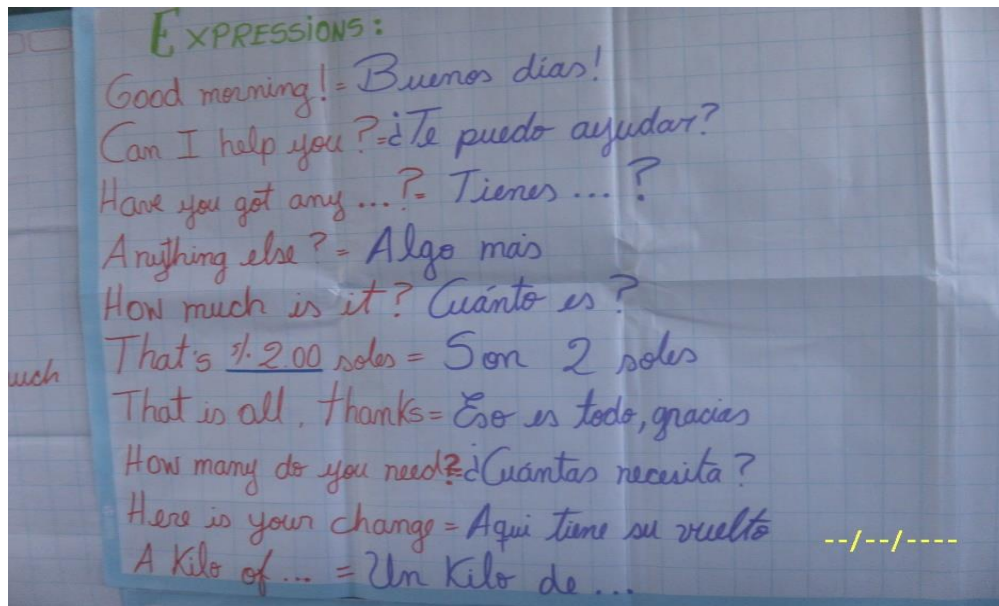 EXPRESSIONS:
Good morning! = Buenos días!
Can I help you? = ¿Te puedo ayudar?
Have you got any ...? = Tienes ... ?
Anything else? = Algo más
How much is it? Cuánto es?
That's s/. 2.00 soles = Son 2 soles
uch
That is all, thanks = Eso es todo, gracias
How many do you need? = ¿Cuántas necesita?
Here is your change = Aqui tiene su vuelto
--/--/----
A Kilo of ... = Un Kilo de ...